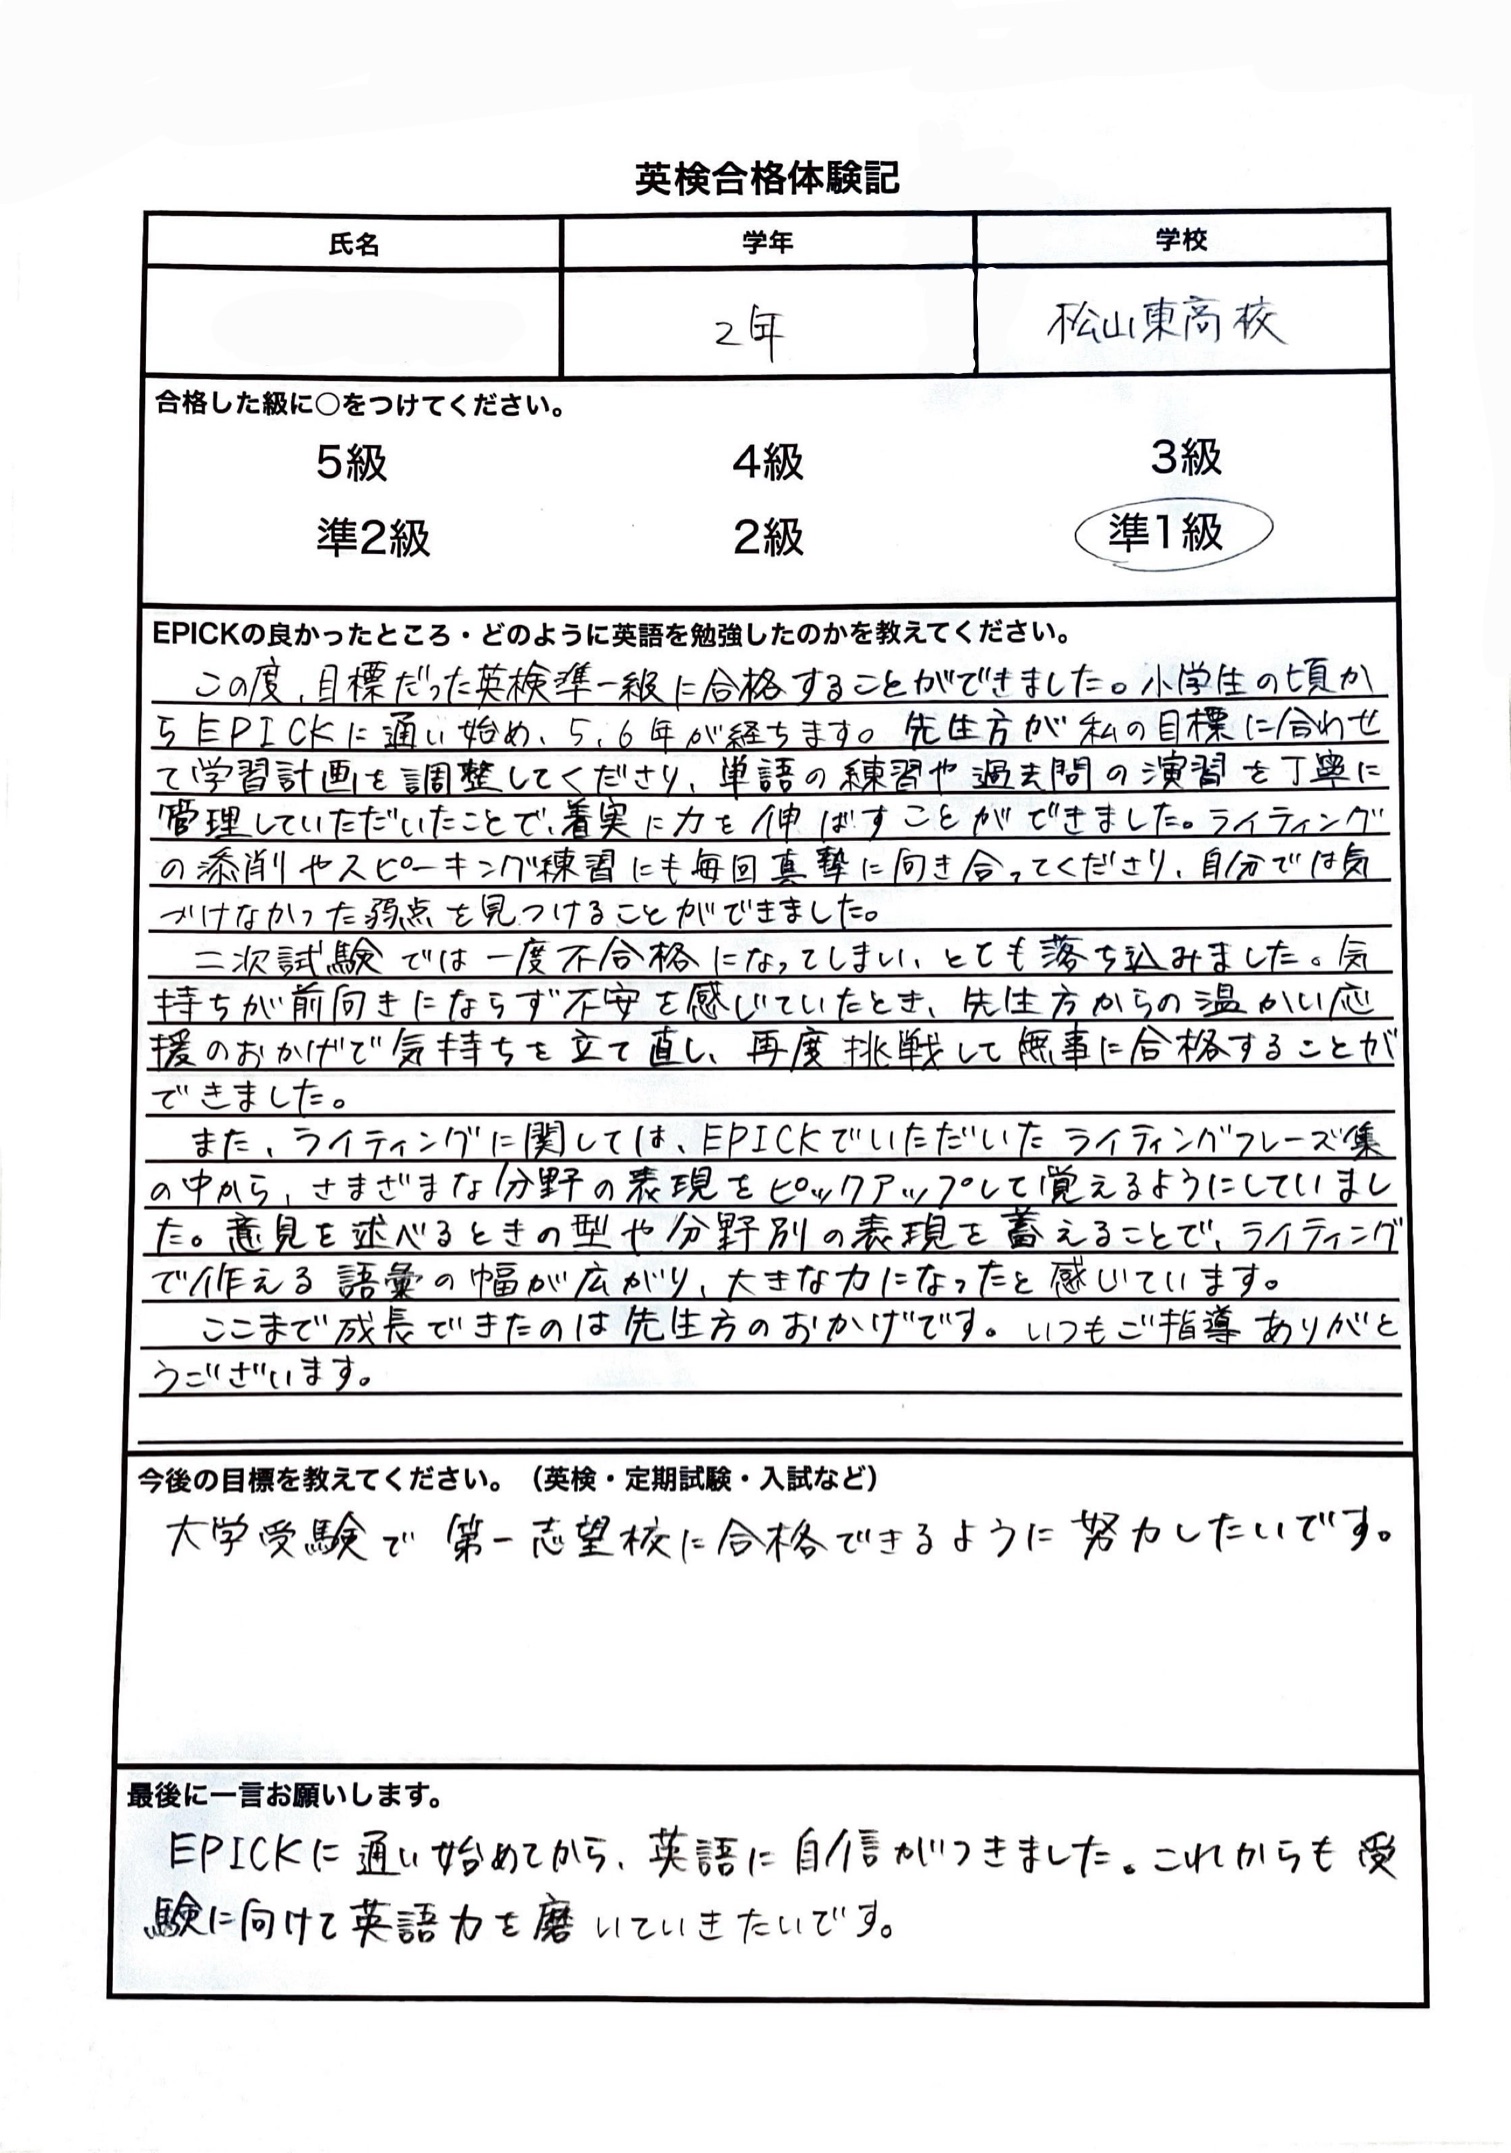 英検合格体験記
氏名 学年 学校
2年 松山東高校
合格した級に○をつけてください。
5級 4級 3級
準2級 2級 準1級
EPICKの良かったところ・どのように英語を勉強したのかを教えてください。
この度、目標だった英検準一級に合格することができました。小学生の頃か
らEPICKに通い始め、5、6年が経ちます。先生方が私の目標に合わせ
て学習計画を調整してくださり、単語の練習や過去問の演習を丁寧に
管理していただいたことで、着実に力を伸ばすことができました。ライティング
の添削やスピーキング練習にも毎回真摯に向き合ってくださり、自分では気
づけなかった弱点を見つけることができました。
二次試験では一度不合格になってしまい、とても落ち込みました。気
持ちが前向きにならず不安を感じていたとき、先生方からの温かい応
援のおかげで気持ちを立て直し、再度挑戦して無事に合格することが
できました。
また、ライティングに関しては、EPICKでいただいたライティングフレーズ集
の中から、さまざまな分野の表現をピックアップして覚えるようにしていまし
た。意見を述べるときの型や分野別の表現を蓄えることで、ライティング
で作える語彙の幅が広がり、大きな力になったと感じています。
ここまで成長できたのは先生方のおかげです。いつもご指導ありがと
うございます。
今後の目標を教えてください。（英検・定期試験・入試など）
大学受験で第一志望校に合格できるように努力したいです。
最後に一言お願いします。
EPICKに通い始めてから、英語に自信がつきました。これからも受
験に向けて英語力を磨いていきたいです。